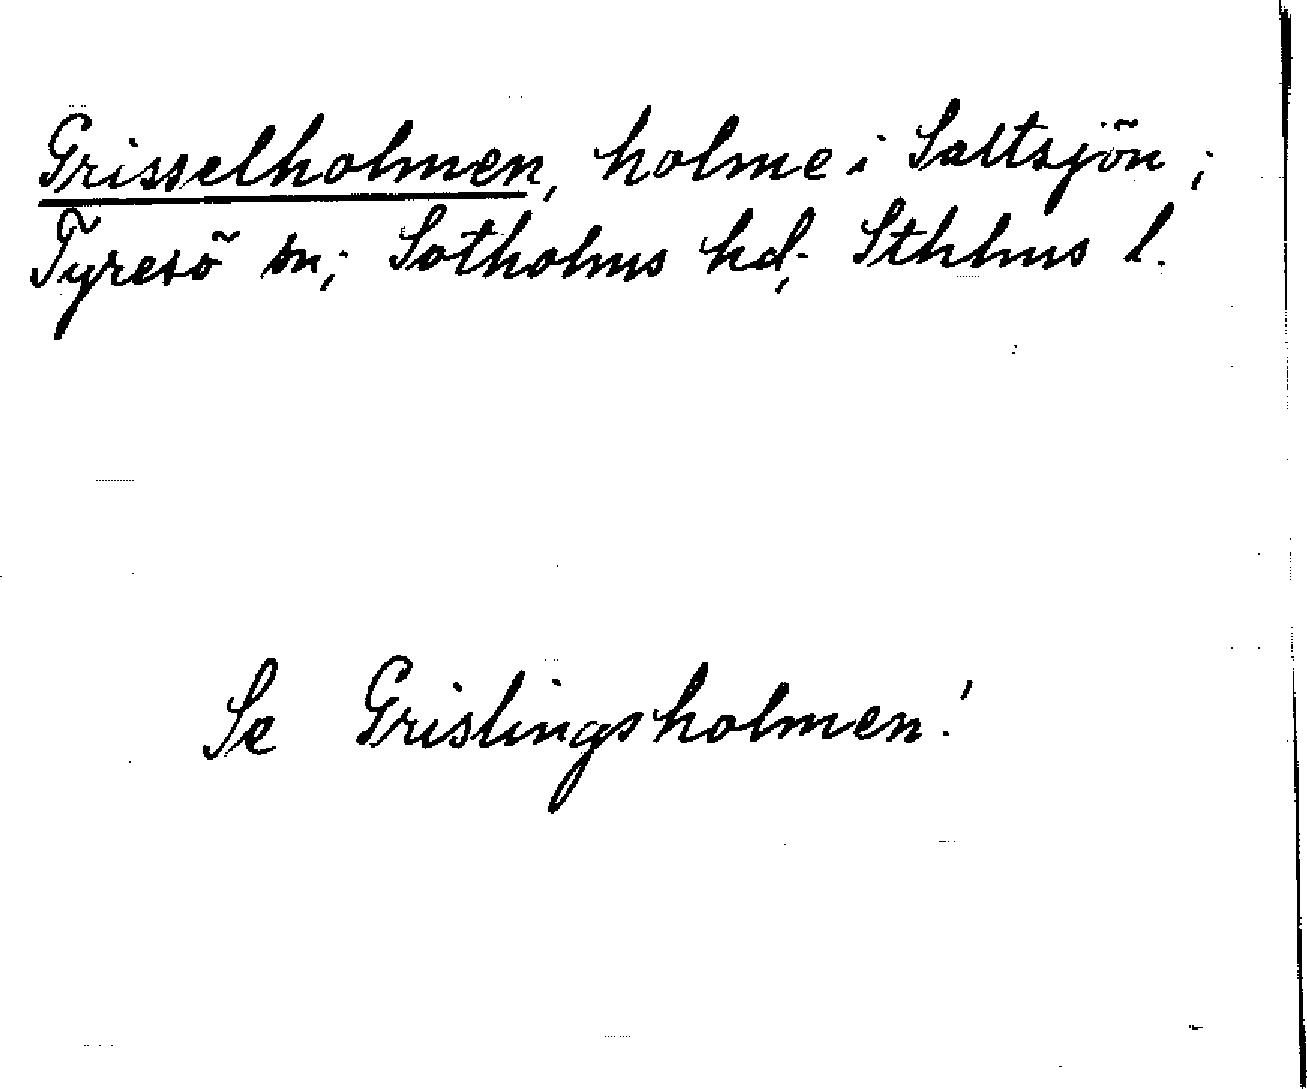 Grisselholmen, holme i Saltsjön;
Tyresö sn; Sotholms hd; Sthlms l.
Se Grislingsholmen!